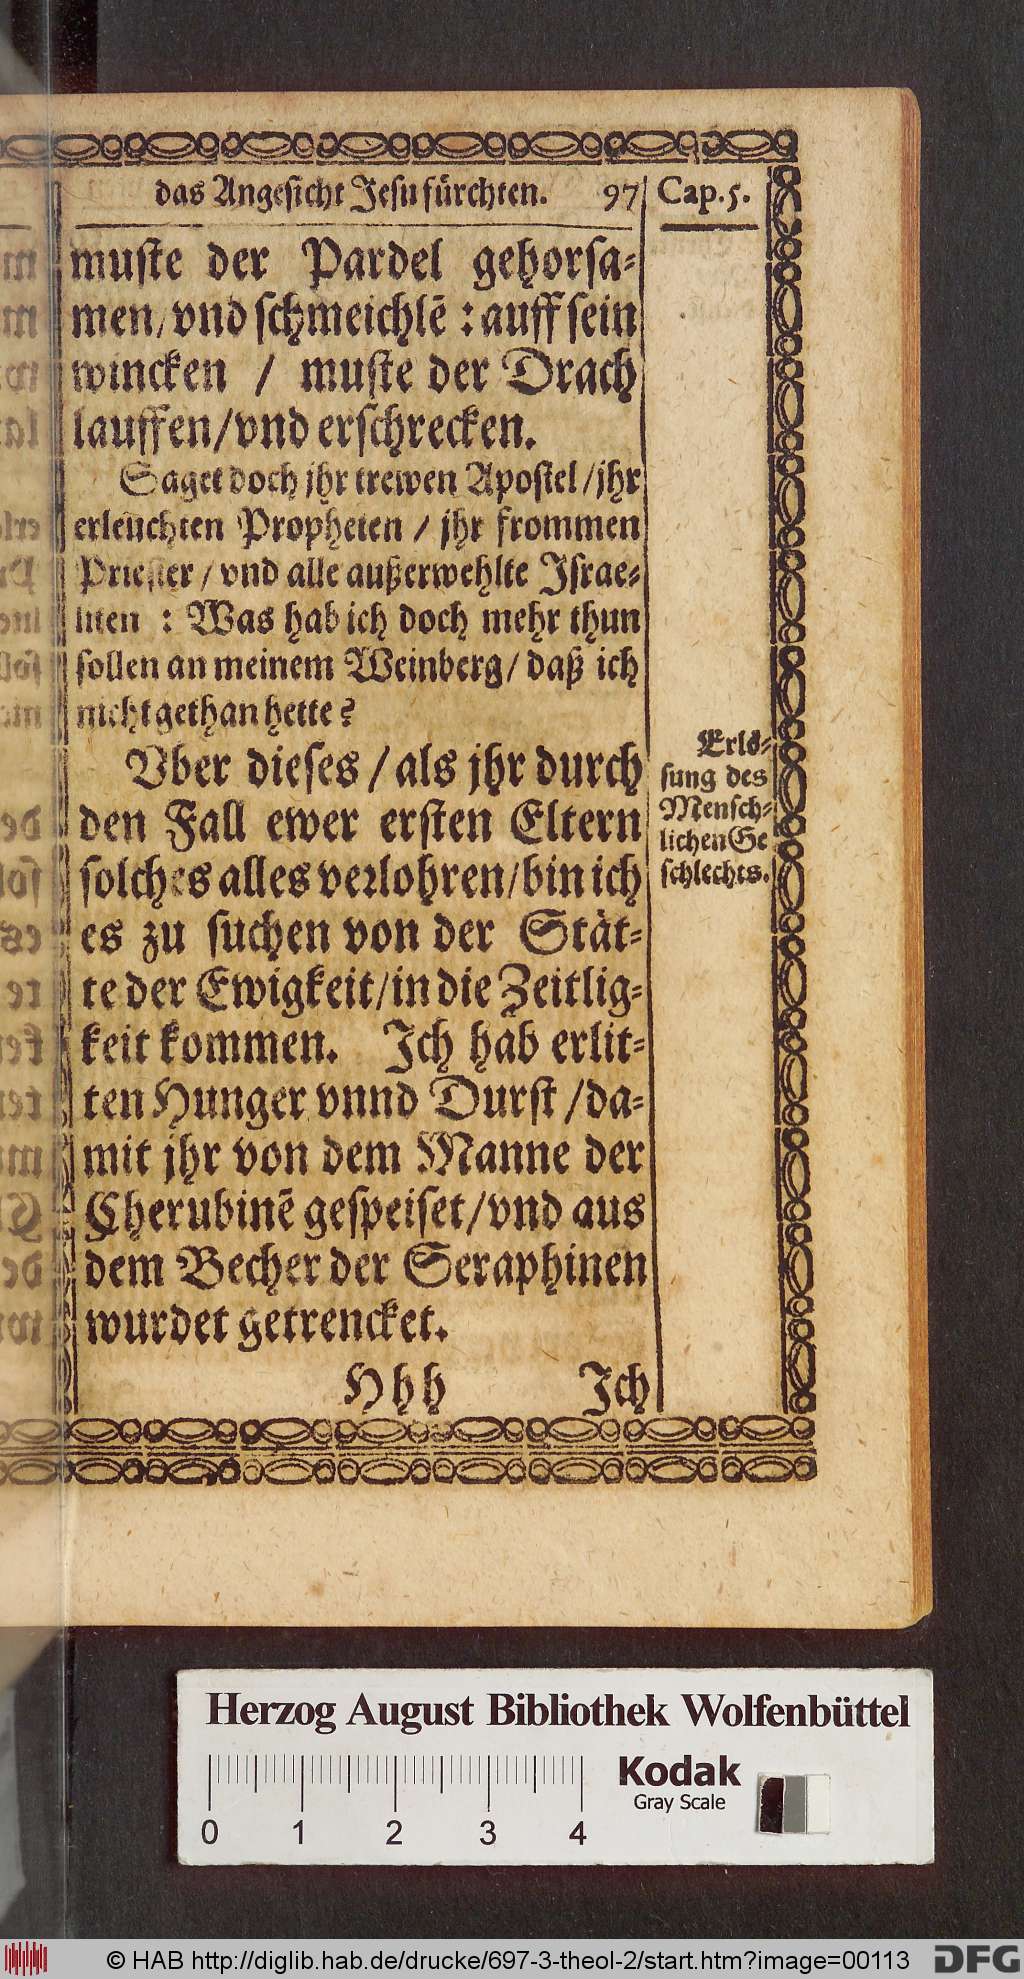 das Angesicht Jesu fürchten. 97 Cap. 5.
muste der Pardel gehorsa⸗
men/ vnd schmeichlẽ : auff sein
wincken / muste der Drach
lauffen/ vnd erschrecken.
Saget doch jhr trewen Apostel / jhr
erleuchten Propheten / jhr frommen
Priester / vnd alle außerwehlte Israe⸗
liten : Was hab ich doch mehr thun
sollen an meinem Weinberg/ daß ich
nicht gethan hette?
Vber dieses / als jhr durch
den Fall ewer ersten Eltern
solches alles verlohren/ bin ich
es zu suchen von der Stät⸗
te der Ewigkeit/ in die Zeitlig⸗
keit kommen. Ich hab erlit⸗
ten Hunger vnnd Durst / da⸗
mit jhr von dem Manne der
Cherubinẽ gespeiset/ vnd aus
dem Becher der Seraphinen
wurdet getrencket.
Erlö⸗
sung des
Mensch⸗
lichen Ge
schlechts.
H h h Ich
Herzog August Bibliothek Wolfenbüttel
Kodak
Gray Scale
0 1 2 3 4
© HAB http://diglib.hab.de/drucke/697-3-theol-2/start.htm?image=00113 DFG